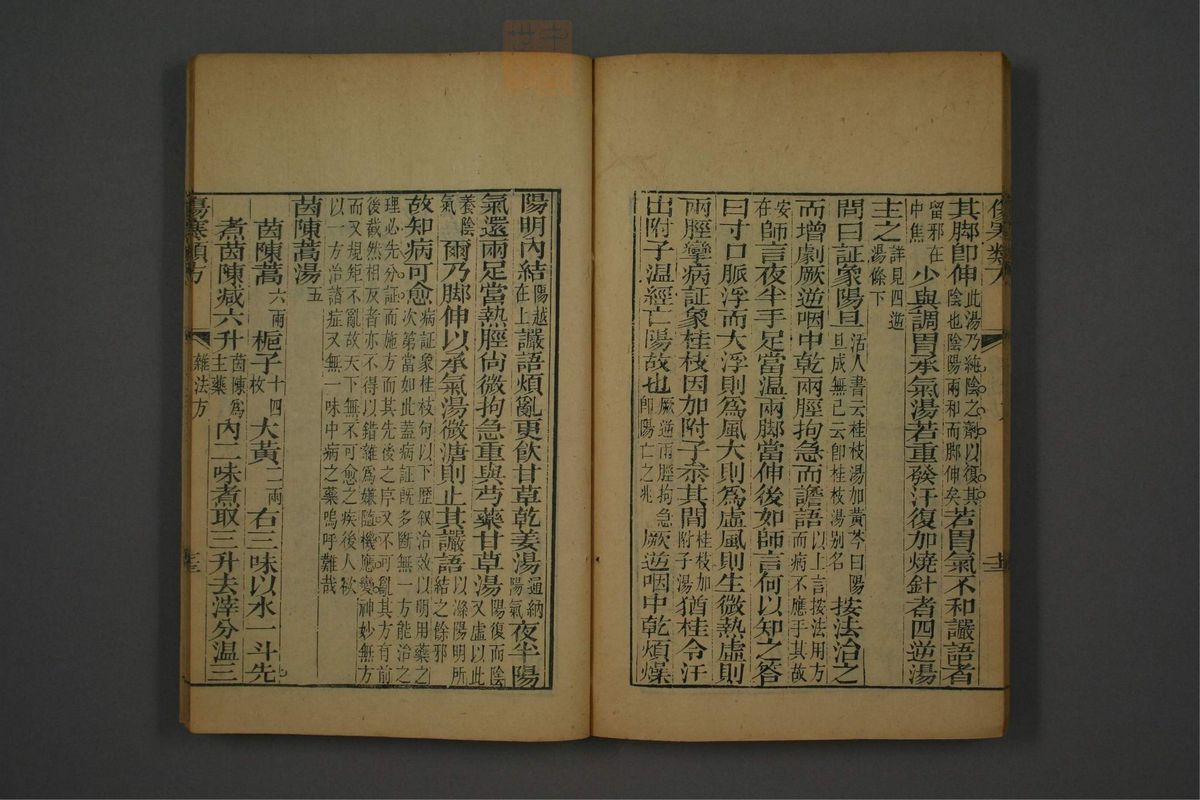 傷寒類方
其脚卽伸此湯乃純陰之劑以復其陰也陰陽兩和而脚伸矣若胃氣不和讝語者
留邪在中焦少與調胃承氣湯若重發汗復加燒針者四逆湯
主之詳見四逆湯條下
問曰証象陽旦活人書云桂枝湯加黃芩曰陽旦成無己云卽桂枝湯別名按法治之
而增劇厥逆咽中乾兩脛拘急而譫語以上言按法用方而病不應于其故
安在師言夜半手足當溫兩脚當伸後如師言何以知之答
曰寸口脈浮而大浮則爲風大則爲虛風則生微熱虛則
兩脛攣病証象桂枝因加附子叅其間桂枝加附子湯猶桂令汗
出附子温經亡陽故也厥逆兩脛拘急卽陽亡之兆厥逆咽中乾煩燥
陽明內結陽越在上讝語煩亂更飲甘草乾姜湯通納陽氣夜半陽
氣還兩足當熱脛尙微拘急重與芍藥甘草湯陽復而陰又虛以此
養陰氣爾乃脚伸以承氣湯微溏則止其讝語以滌陽明所結之餘邪
故知病可愈病証象桂枝句以下歷叙治效以明用藥之次第當如此蓋病証旣多斷無一方能治之
理必先分証而施方而其先後之序又不可亂其方有前後截然相反者亦不得以錯雜爲嫌隨機應變神妙無方
而又規矩不亂故天下無不可愈之疾後人欲以一方治諸症又無一味中病之藥嗚呼難哉
茵陳蒿湯五
茵陳蒿六兩梔子十四枚大黃二兩右三味以水一斗先
煮茵陳减六升茵陳爲主藥內二味煮取三升去滓分温三
傷寒類方 雜法方